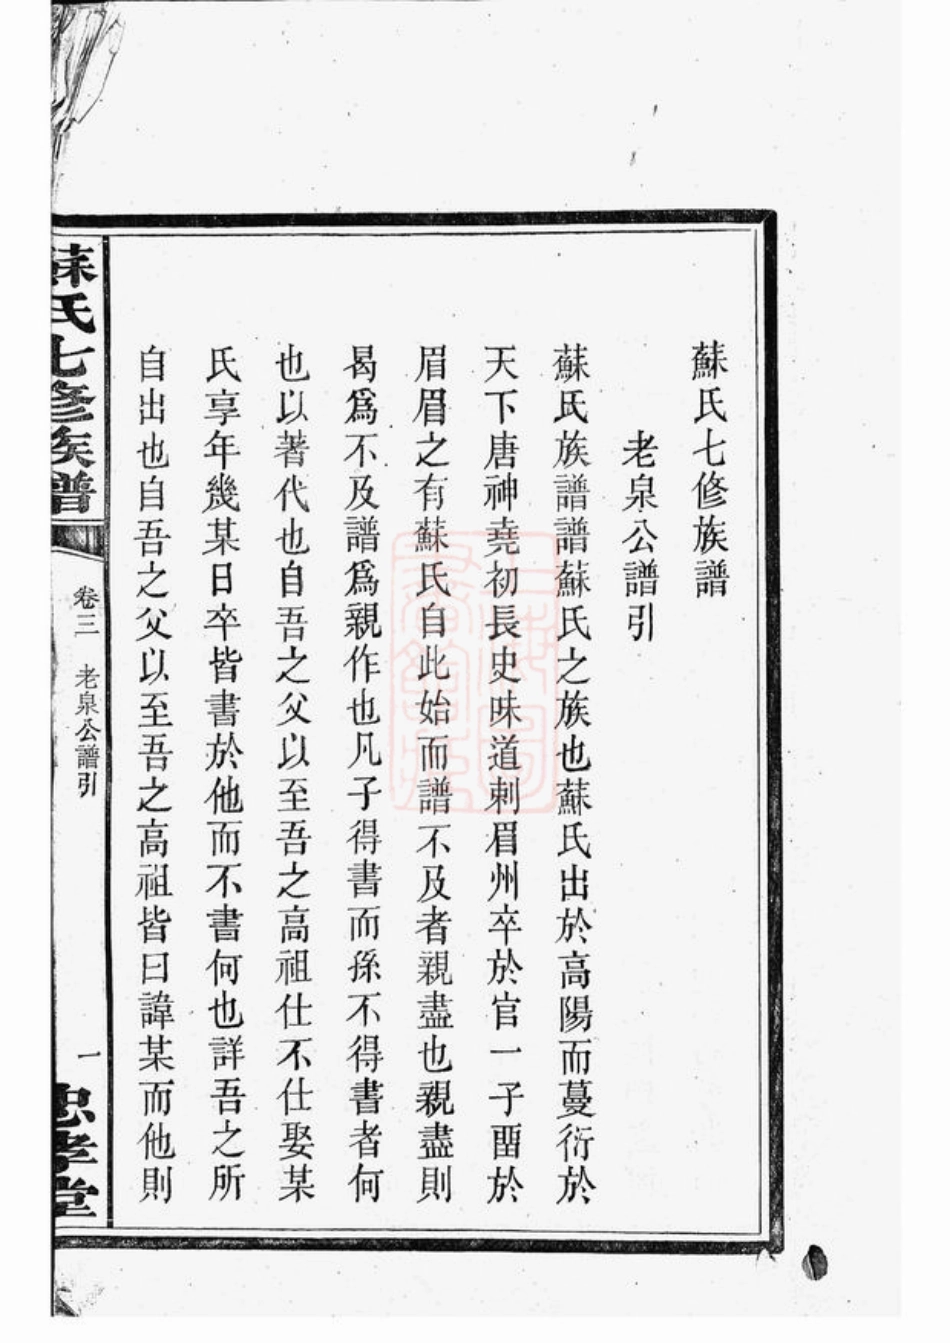 蘇氏七修族譜
老泉公譜引
蘇氏族譜譜蘇氏之族也蘇氏出於高陽而蔓衍於
天下唐神堯初長史味道刺眉州卒於官一子畱於
眉眉之有蘇氏自此始而譜不及者親盡也親盡則
曷爲不及譜爲親作也凡子得書而孫不得書者何
也以著代也自吾之父以至吾之高祖仕不仕娶某
氏享年幾某日卒皆書於他而不書何也詳吾之所
自出也自吾之父以至吾之高祖皆曰諱某而他則
蘇氏七修族譜
卷三
老泉公譜引
一
忠孝堂